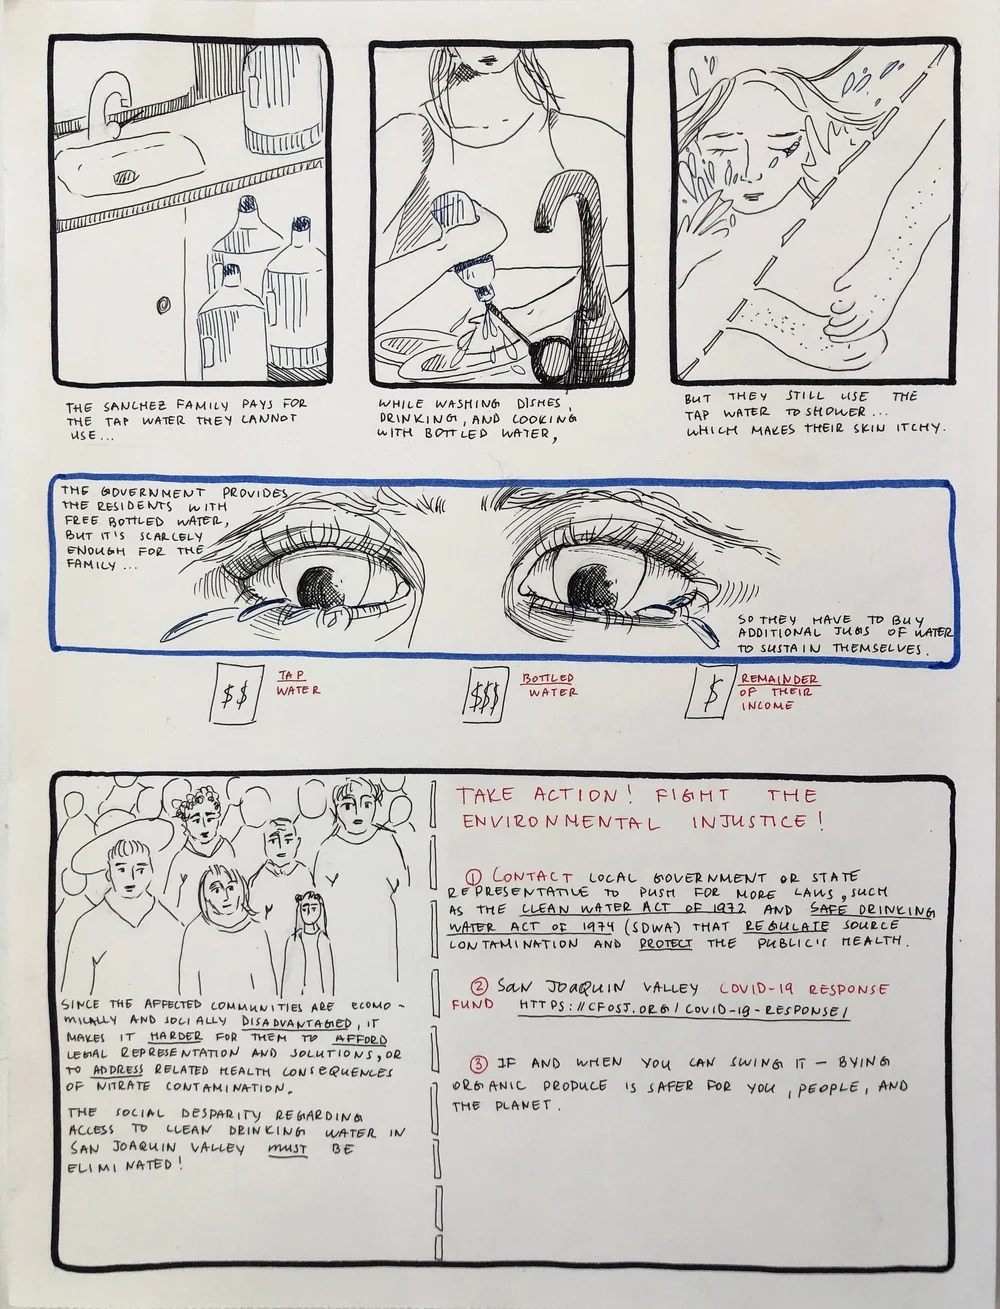 THE SANCHEZ FAMILY PAYS FOR
THE TAP WATER THEY CANNOT
USE...
WHILE WASHING DISHES,
DRINKING, AND COOKING
WITH BOTTLED WATER,
BUT THEY STILL USE THE
TAP WATER TO SHOWER...
WHICH MAKES THEIR SKIN ITCHY.
THE GOVERNMENT PROVIDES
THE RESIDENTS WITH
FREE BOTTLED WATER,
BUT IT'S SCARCELY
ENOUGH FOR THE
FAMILY...
SO THEY HAVE TO BUY
ADDITIONAL JUGS OF WATER
TO SUSTAIN THEMSELVES.
$$
TAP
WATER
$$$
BOTTLED
WATER
$
REMAINDER
OF THEIR
INCOME
SINCE THE AFFECTED COMMUNITIES ARE ECONO-
MICALLY AND SOCIALLY DISADVANTAGED, IT
MAKES IT HARDER FOR THEM TO AFFORD
LEGAL REPRESENTATION AND SOLUTIONS, OR
TO ADDRESS RELATED HEALTH CONSEQUENCES
OF NITRATE CONTAMINATION.
THE SOCIAL DESPARITY REGARDING
ACCESS TO CLEAN DRINKING WATER IN
SAN JOAQUIN VALLEY MUST BE
ELIMINATED!
TAKE ACTION! FIGHT THE
ENVIRONMENTAL INJUSTICE!
① CONTACT LOCAL GOVERNMENT OR STATE
REPRESENTATIVE TO PUSH FOR MORE LAWS, SUCH
AS THE CLEAN WATER ACT OF 1972 AND SAFE DRINKING
WATER ACT OF 1974 (SDWA) THAT REGULATE SOURCE
CONTAMINATION AND PROTECT THE PUBLIC'S HEALTH.
② SAN JOAQUIN VALLEY COVID-19 RESPONSE
FUND HTTPS://CFOSJ.ORG/COVID-19-RESPONSE/
③ IF AND WHEN YOU CAN SWING IT — BYING
ORGANIC PRODUCE IS SAFER FOR YOU, PEOPLE, AND
THE PLANET.